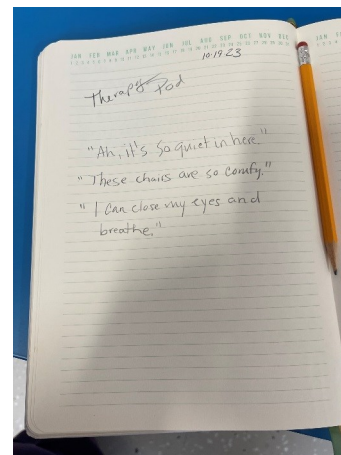 JAN FEB MAR APR MAY JUN JUL AUG SEP OCT NOV DEC
10.19.23
Therapy Pod
"Ah, it's so quiet in here."
"These chairs are so comfy."
"I can close my eyes and
breathe."
JAN